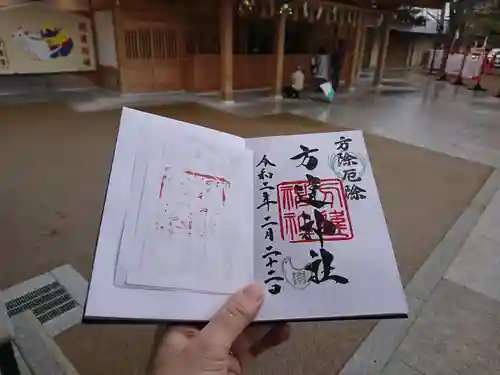 方除厄除
方違神社
令和二年二月二十二日